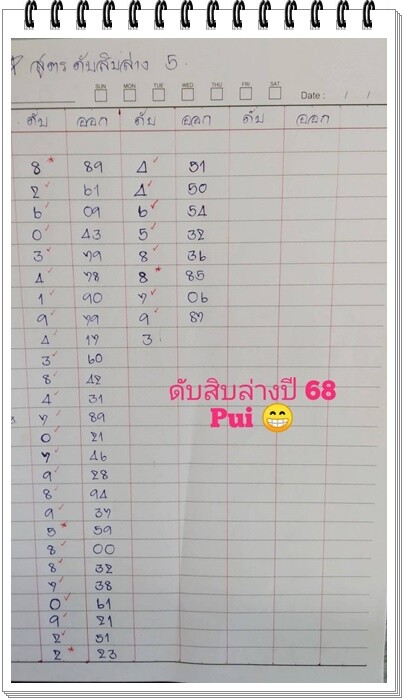 * สูตร ดับสิบล่าง 5.
SUN MON TUE WED THU FRI SAT
Date : / /
ดับ ออก ดับ ออก ดับ ออก
8 * 89 4 ✓ 51
2 ✓ 61 4 ✓ 50
6 ✓ 09 6 ✓ 54
0 ✓ 43 5 ✓ 32
3 ✓ 79 8 ✓ 36
4 ✓ 78 8 * 85
1 ✓ 90 7 ✓ 06
9 ✓ 79 9 ✓ 87
4 ✓ 17 3
3 ✓ 60
8 ✓ 42
4 ✓ 31
7 ✓ 89
0 ✓ 21
7 ✓ 46
9 ✓ 28
8 ✓ 94
9 ✓ 37
5 * 59
8 ✓ 00
8 ✓ 32
7 ✓ 38
0 ✓ 61
9 ✓ 21
2 ✓ 51
2 * 23
ดับสิบล่างปี 68
Pui 😁